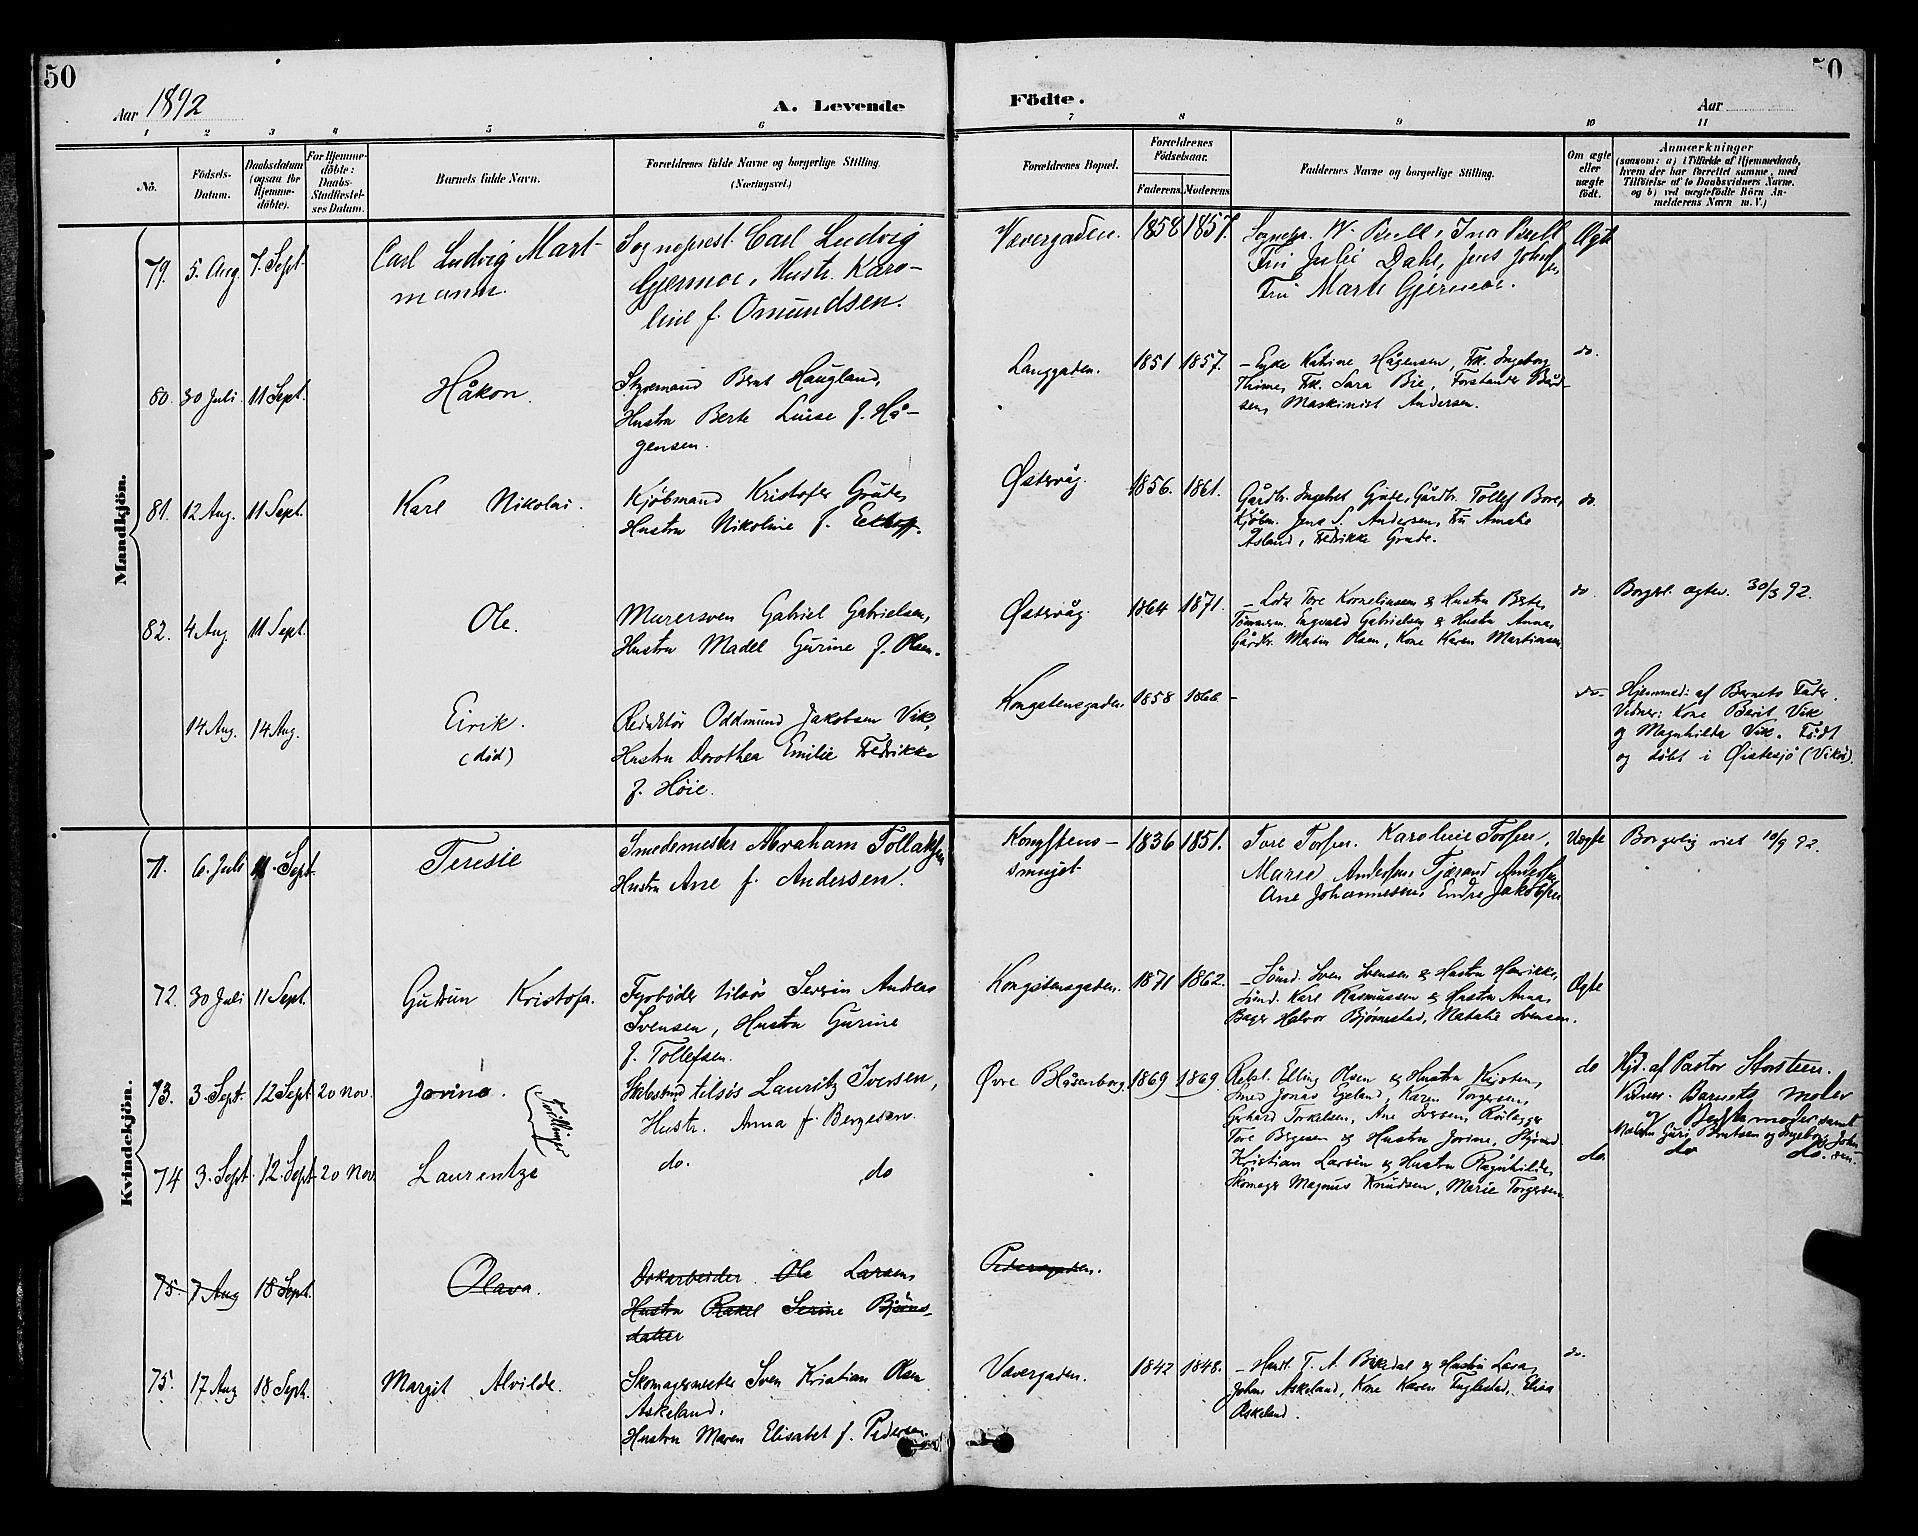 50
50
Aar 1892
A. Levende
Födte.
Aar
1 2 3 4 5 6 7 8 9 10 11
No.
Födsels-
Datum.
Daabsdatum
(ogsaa for
Hjemme-
döbte).
For Hjemme-
döbte:
Daabs-
Stadfæstel-
ses Datum.
Barnets fulde Navn.
Forældrenes fulde Navne og borgerlige Stilling.
(Næringsvei.)
Forældrenes Bopæl.
Forældrenes
Födselsaar.
Faderens. Moderens.
Faddernes Navne og borgerlige Stilling.
Om ægte
eller
uægte
født.
Anmærkninger
(saasom: a) i Tilfælde af Hjemmedaab,
hvem der har forrettet samme, med
Tilföielse af to Daabsvidners Navne.
og b) ved uægtefödte Börn An-
melderens Navn m. V.)
Mandkjön.
79. 5. Aug. 7. Sept.
Carl Ludvig Mart-
mann.
Sogneprest. Carl Ludvig
Gjermoe, Hustr. Karo-
line f. Omundsen.
Vævergaden. 1858 1857.
Sognepr. W. Brell, Ina Brell
Fru Julie Dahl, Jens Johnsen
Fru Marte Gjermoe.
Ægte
80. 30 Juli. 11 Sept.
Håkon.
Styrmand Bernt Haugland,
Hustru Berte Luise f. Hå-
gensen.
Langgaden. 1851 1857.
– Enke Katrine Hågensen, Frk. Ingeborg
Thime, Frk. Sara Bie, Forstander
sen, Maskinist Andersen.
do.
81. 12 Aug. 11 Sept.
Karl Nikolai.
Kjøbmand Kristofer Grude,
Hustru Nikoline f.
Østervåg. 1856. 1861.
Gårdbr. Ingebret Grude, Gårdbr. Tollef Bore,
Kjøbm. Jens S. Andersen, Fru Amalie
Åsland, Fredrikke Grude.
do
82. 4 Aug 11 Sept.
Ole.
Murersven Gabriel Gabrielsen,
Hustru Madel Gurine f. Olsen.
Østervåg 1864 1871.
– Lods Tore Korneliussen & Hustru Berte,
Tømmerm. Engvald Gabrielsen & Hustru Anna,
Gårdbr. Martin Olsen, Kone Karen Martinsen
do. Borgerl. ægtev. 30/3 92.
14 Aug. 14 Aug.
Eirik.
(død)
Redaktør Oddmund Jakobsen Vik,
Hustru Dorothea Emilie Fredrikke
f. Høie.
Kongstensgaden 1858 1866 –
do–
Hjemmed: af Barnets Fader.
Vidner: Kone Berit Vik
og Magnhilda Vik. Født
og døbt i Østesjø (Vikør).
Kvindekjön.
71. 6. Juli 11. Sept.
Teresie
Smedemester Abraham Tollaksen
Hustru Ane f. Andersen.
Kongstens-
smuget. 1836 1851.
Tore Torsen. Karoline Torsen,
Marie Andersen, Tjerand Andersen
Ane Johannessen, Endre Jakobsen
Uægte Borgerlig viet 10/9 92.
72. 30 Juli 11 Sept.
Gudrun Kristofa.
Fyrbøder tilsøs Severin Andreas
Svensen, Hustru Gurine
f. Tollefsen.
Kongstensgaden. 1871 1862.
– Sømd. Sven Svensen & Hustru Henrikke,
Sømd. Karl Rasmussen & Hustru Anna,
Bager Halvor Bjørnestad, Natalie Svensen.
Ægte
73. 3. Sept. 12 Sept 20 Nov.
Jorina.
Tvillinger
tilsøs Lauritz Iversen,
Hustr. Anna f Bergesen.
Øvre Blåsenborg. 1869 1869.
Rebsl. Elling Olsen og Hustru Kirsten,
Smed Jonas Egeland, Karen Torgersen,
Gerhard Torkelsen, Ane Iversen,
Tore Bergesen og Hustru Jorine,
Kristian Larsen og Hustru Ragnhilde,
Skomager Magnus Knudsen, Marie Torgersen
do Hjd. af Pastor Storsteen.
Vidner. Barnets Moder
og Bedstemoder samt
Guri Berntsen og Ingeborg John-
sen.
74 3. Sept 12. Sept 20 Nov.
Laurentze
do. do
do. do do.
75. 7 Aug 18 Sept.
Olava.
Dokarbeider Ole Larsen,
Hustru Rakel Serine Bjørns-
datter
Pedersgaden.
75. 17 Aug 18 Sept.
Margit Alvilde.
Skomagermester Sven Kristian Olsen
Askeland.
Hustru Maren Elisabet f. Pedersen.
Vævergaden. 1842 1848.
– Handl. T. A. Birkedal & Hustru Lara,
Johan Askeland, Kone Karen Fuglestad, Elisa
Askeland.
do.